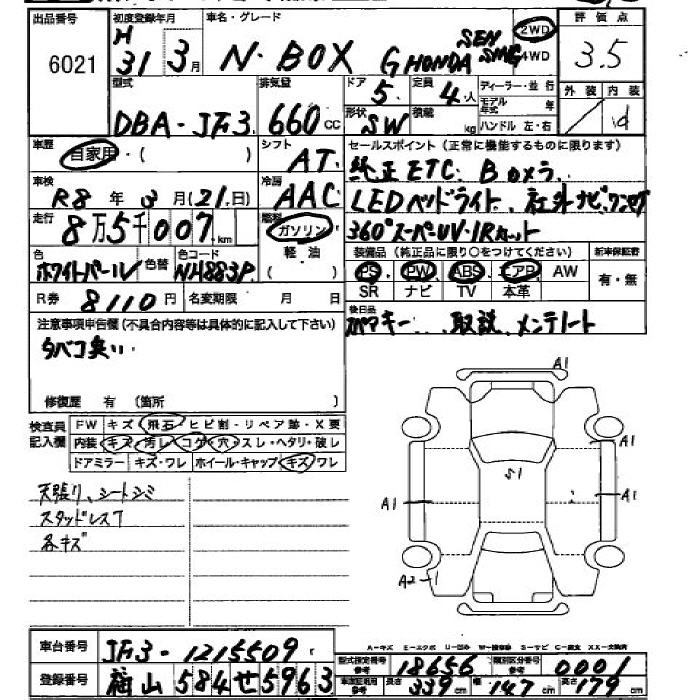 出品番号 初度登録年月 車名・グレード 評価点
6021 H 31年 3月 N-BOX G HONDA SEN SING 2WD 4WD 3.5
型式 排気量 ドア 定員 ディーラー・並行 外装 内装
DBA-JF3 660cc 5 4人 モデル年式 年 d
形状 SW 積載 kg ハンドル 左・右
車歴 自家用・( ) シフト AT セールスポイント(正常に機能するものに限ります)
純正ETC. Bカメラ
車検 R8年 3月(21日) 冷房 AAC LEDヘッドライト、社外ナビ・ワンセグ
走行 8万5千007km 燃料 ガソリン 軽・油 ( ) 360°スーパーUV・IRカット
色 ホワイトパール 色替 色コード NH883P 装備品(純正品に限り○をつけてください) 新車保証書
PS PW ABS エアB AW 有・無
SR ナビ TV 本革
R券 8110円 名変期限 月 日 後日品
スペアキー、取説、メンテノート
注意事項申告欄(不具合内容等は具体的に記入して下さい)
タバコ臭い
修復歴 有 (箇所 )
検査員記入欄 FW キズ・飛石・ヒビ割・リペア跡・X要
内装・キズ・汚レ・コゲ・穴・スレ・ヘタリ・破レ
ドアミラー キズ・ワレ ホイール・キャップ キズ・ワレ
天張り、シートシミ
スタッドレス7
各キズ
A1
A1
S1
A1
A1
A2
車台番号 JF3-1215509
A-キズ E-エクボ U-凹み S-サビ
型式指定番号 18656 類別区分番号 0001
登録番号 福山 584 せ 5963
車庫証明用参考 長さ 339cm 幅 147cm 高さ 179cm